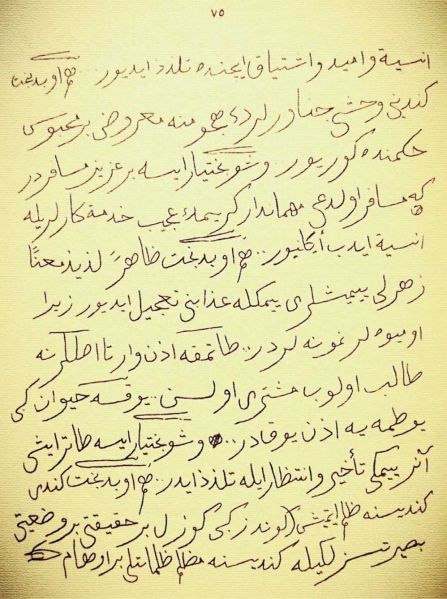 ٧٥
انسیة و امید و اشتیاق ایچنده تلذذ ایدیور.. هم او بدبخت
کندینی وحشی جناورلردڭ هجومنه معروض بر محبوس
حکمنده کوریور.. و شو بختیار ایسه بر عزیز مسافردر
که مسافر اولدیغی مهماندار کریمڭ عجیب خدمة کارلریله
انسیة ایدب اڭلنیور.. هم او بدبخت ظاهرً لذیذ معنًا
زهرلی ییمیشلری ییمکله عذابنی تعجیل ایدیور زیرا
او میوه لر نمونه لردر.. طاتمقه اذن وار تا اصللرینه
طالب اولوب مشتری اولسن.. یوقسه حیوان کبی
یوطمه یه اذن یوقدر.. و شو بختیار ایسه طاتر ایشی
آڭلر ییمکی تأخیر و انتظار ایله تلذذ ایدر.. هم او بدبخت کندی
کندیسنه ظلم ایتمشی کوندز کبی کوزل بر حقیقتی بر وضعیتی
بصیرتسزلکیله کندیسنه مظلم ظلماتلی بر اوهام